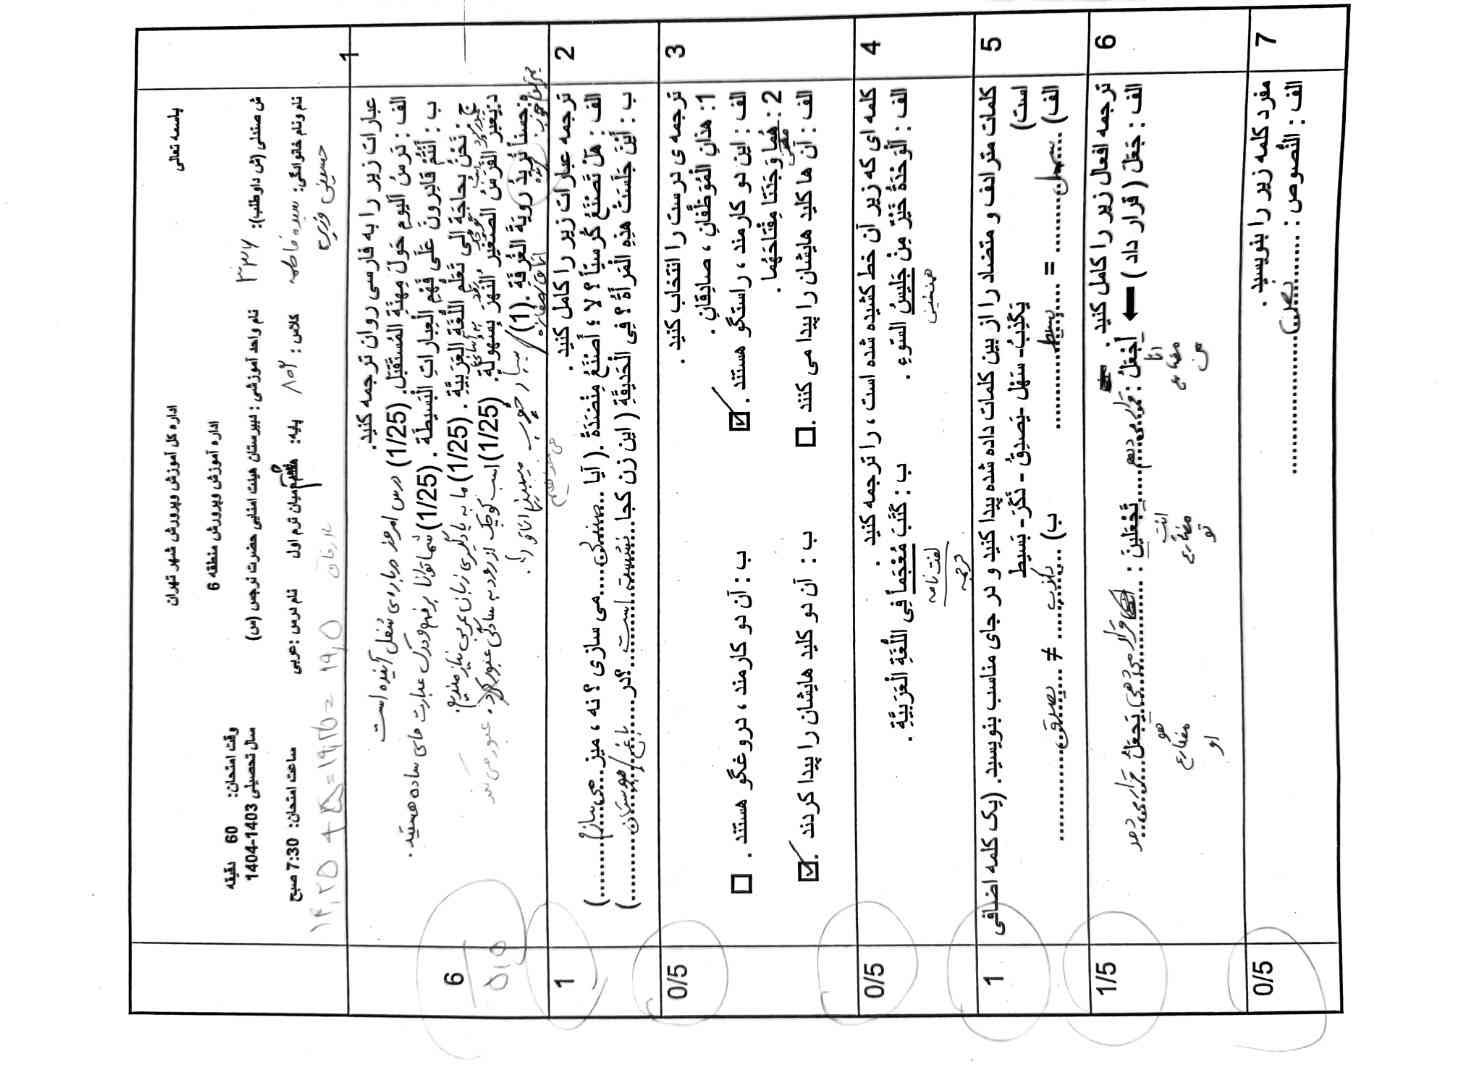 باسمه تعالی
اداره کل آموزش وپرورش شهر تهران
اداره آموزش وپرورش منطقه 6
ش صندلی (ش داوطلب): ۳۳۷ نام واحد آموزشی : دبیرستان هیئت امنایی حضرت نرجس (س) سال تحصیلی 1403-1404 وقت امتحان: 60 دقیقه
نام ونام خانوادگی: سیده فاطمه حسینی کلاس : ۸۰۲ پایه: هشتم میان ترم اول نام درس :عربی ساعت امتحان: 7:30 صبح
۱۴,۲۵ + ۵ = ۱۹,۲۵ = ۱۹,۵
1 عبارات زیر را به فارسی روان ترجمه کنید.
الف : دَرسُ الیَومِ حَولَ مِهنَةِ المُستَقبَلِ. (1/25) درس امروز درباره ی شغل آینده است
ب : أنتُم قادِرونَ عَلَی فَهمِ العِباراتِ البَسیطَةِ . (1/25) شما توانا بر فهم ودرک عبارت های ساده هستید.
ج : نَحنُ بِحاجَةٍ إلی تَعَلُّمِ اللُّغَةِ العَرَبیَّةِ . (1/25) ما به یادگیری زبان عربی نیازمندیم.
د : یَعبُرُ الفَرَسُ الصَغیرُ النَهرَ بِسُهولَةٍ. (1/25) اسب کوچک از رود به سادگی عبور کرد. عبور می کند
تُریدُ رویَةَ الغُرفَةِ .(1)
6
۵,۵
2 ترجمه عبارات زیر را کامل کنید.
الف : هَل تَصنَعُ کُرسیّاً ؟ لا ؛ أصنَعُ مِنضَدَةً .( آیا صندلی می سازی ؟ نه ، میز می سازم)
ب : أینَ جَلَسَت هذِهِ المَرأةُ ؟ فِی الحَدیقَةِ ( این زن کجا نشسته است ؟در باغ/بوستان)
1
3 ترجمه ی درست را انتخاب کنید .
1: هذانِ المُوَظَّفانِ ، صادِقانِ .
الف : این دو کارمند ، راستگو هستند . ☑ ب : آن دو کارمند ، دروغگو هستند . ☐
2 : هُما وَجَدَتا مِفتاحَهُما .
الف : آن ها کلید هایشان را پیدا می کنند . ☐ ب : آن دو کلید هایشان را پیدا کردند . ☑
0/5
4 کلمه ای که زیر آن خط کشیده شده است ، را ترجمه کنید .
الف : اَلوَحدَةُ خَیرٌ مِن جَلیسِ السّوءِ . ب : کَتَبَ مُعجَماً فِی اللُّغَةِ العَرَبیَّةِ .
همنشین لغت نامه
ترجمه
0/5
5 کلمات مترادف و متضاد را از بین کلمات داده شده پیدا کنید و در جای مناسب بنویسید. (یک کلمه اضافی است)
یَکذِبُ- سَهل -یَصدِقُ - ذَکَرَ- بَسیط
الف) سهل = بسیط ب) یکذب ≠ یصدق
1
6 ترجمه افعال زیر را کامل کنید .
الف : جَعَلَ ( قرار داد ) ← أجعَلُ : قرار می دهم تَجعَلینَ : قرار می دهی یَجعَلُ : قرار می دهد
انا انت هو
مضارع مضارع مضارع
من تو او
1/5
7 مفرد کلمه زیر را بنویسید .
الف : النُصوص : نص
0/5